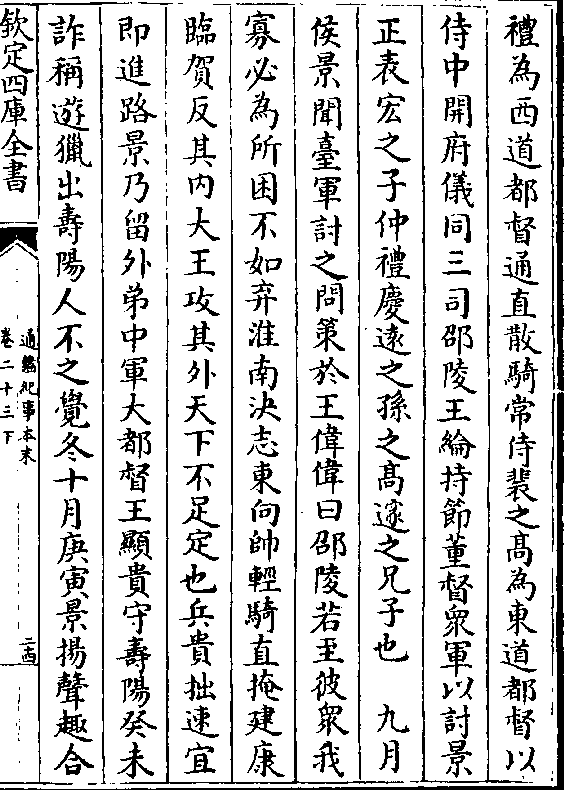 禮為西道都督通直散騎常侍裴之髙為東道都督以
侍中開府儀同三司邵陵王綸持節董督衆軍以討景
正表宏之子仲禮慶逺之孫之髙邃之兄子也　九月
侯景聞臺軍討之問策於王偉偉曰邵陵若至彼衆我
寡必為所困不如弃淮南決志東向帥輕騎直掩建康
臨賀反其内大王攻其外天下不足定也兵貴拙速宜
即進路景乃留外弟中軍大都督王顯貴守壽陽癸未
詐稱遊獵出壽陽人不之覺冬十月庚寅景揚聲趣合
欽定四庫全書
通鑑紀事本末
卷二十三下
二四